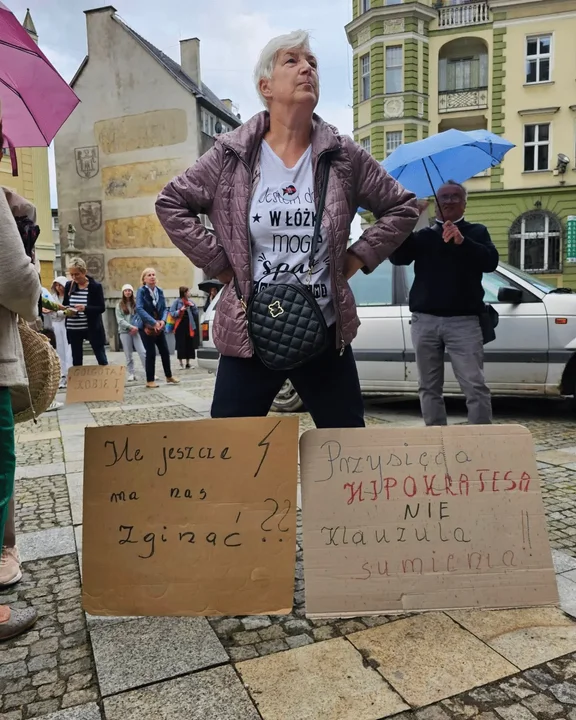 Jestem dobra
W ŁÓŻKU
mogę
spać
Ile jeszcze
ma nas
zginąć ??
Przysięga
HIPOKRATESA
NIE
Klauzula
sumienia !!